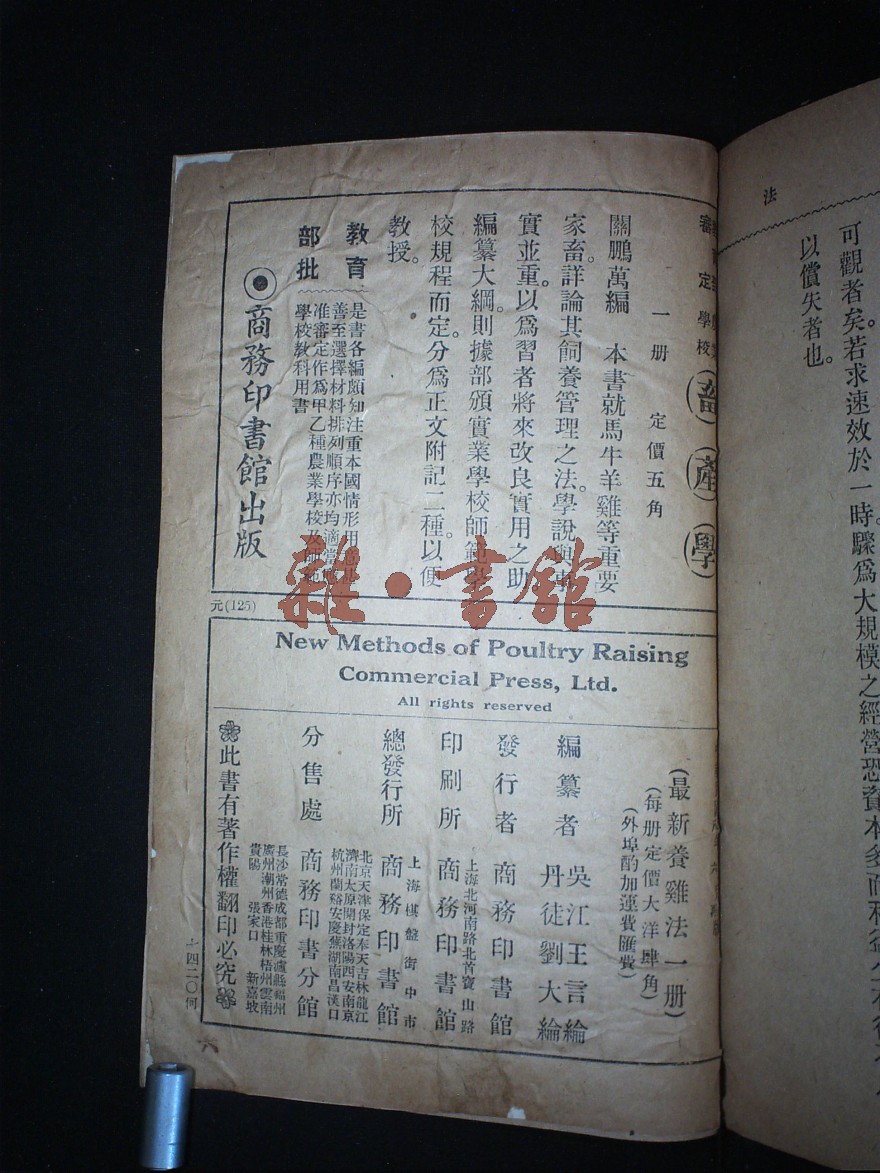 法
可觀者矣。若求速效於一時。驟爲大規模之經營恐資本多而
以償失者也。
審定
學校
畜產學
一册 定價五角
關鵬萬編 本書就馬牛羊雞等重要
家畜。詳論其飼養管理之法。學說與
實並重。以爲習者將來改良實用之助
編纂大綱。則據部頒實業學校師範學
校規程而定。分爲正文附記二種以便
教授。
教育
部批
是書各編頗知注重本國情形用
善至選擇材料排列順序亦均適當
准審定作爲甲乙種農業學校及師範
學校教科用書
商務印書館出版
元(125)
雜·書館
New Methods of Poultry Raising
Commercial Press, Ltd.
All rights reserved
(最新養雞法一册)
(每册定價大洋肆角)
(外埠酌加運費匯費)
編纂者 吳江王言綸
丹徒劉大綸
發行者 商務印書館
上海北河南路北首寶山路
印刷所 商務印書館
上海棋盤街中市
總發行所 商務印書館
北京天津保定奉天吉林龍江
濟南太原開封洛陽西安南京
杭州蘭谿安慶蕪湖南昌漢口
分售處 商務印書分館
長沙常德成都重慶瀘縣福州
廣州潮州香港桂林梧州雲南
貴陽 張家口 新嘉坡
此書有著作權翻印必究
一四二〇何